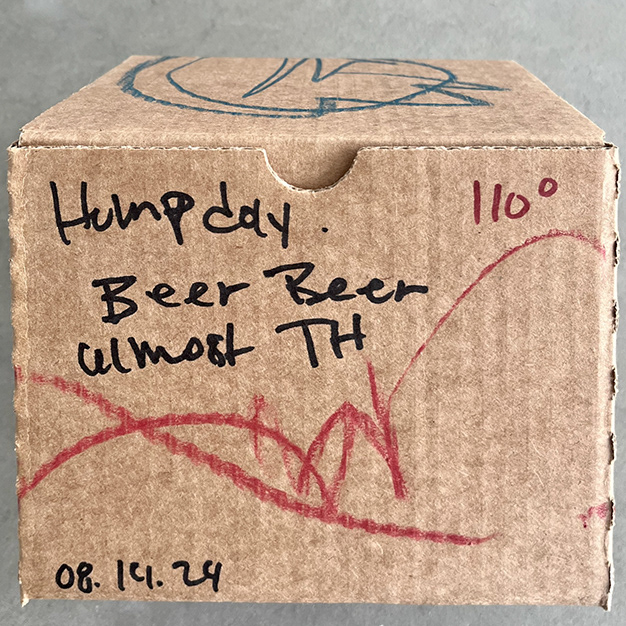 Humpday.
110°
Beer Beer
almost TH
08.14.24